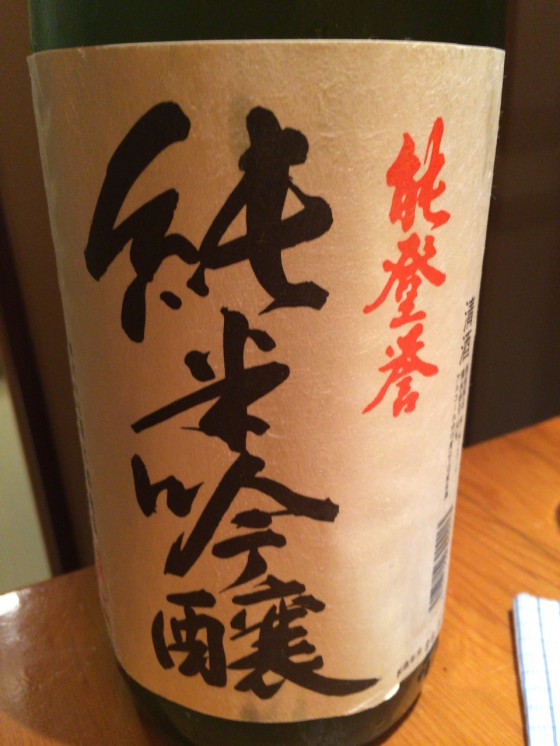 能登誉
純米吟醸
清酒